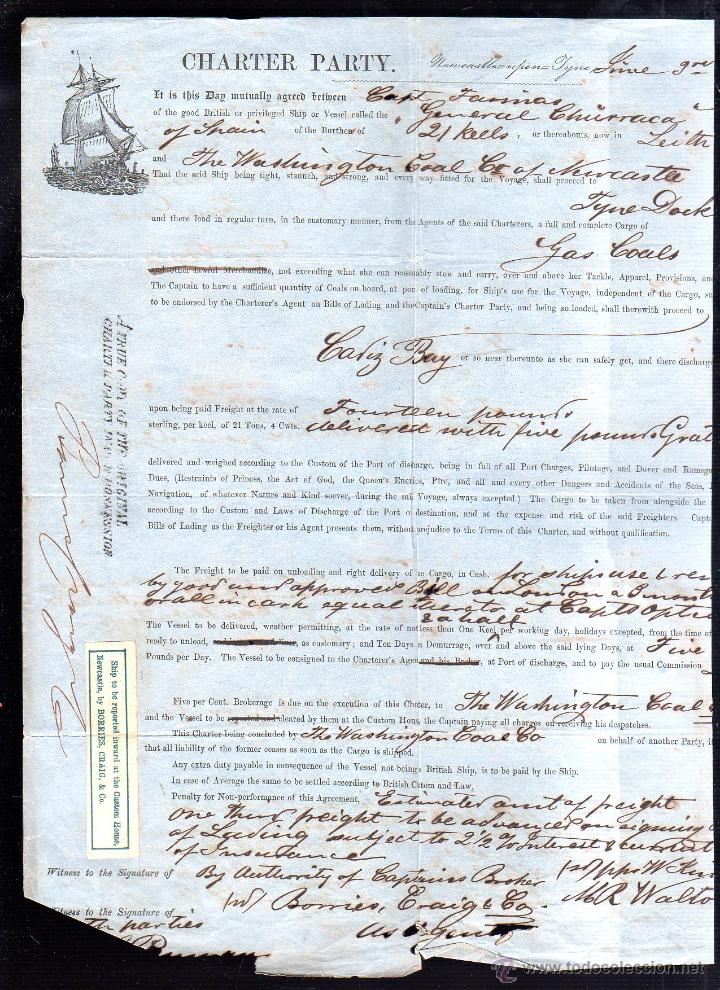 CHARTER PARTY.
Newcastle-upon-Tyne June 9
It is this Day mutually agreed between Capt
of the good British or privileged Ship or Vessel called the "General Churruca"
of Spain of the Burthen of 21 keels, or thereabouts, now in Leith
and The Washington Coal Co of Newcastle
That the said Ship being tight, staunch, and strong, and every way fitted for the Voyage, shall proceed to
Tyne Dock
and there load in regular turn, in the customary manner, from the Agents of the said Charterers, a full and complete Cargo of
Gas Coals
and other lawful Merchandize, not exceeding what she can reasonably stow and carry, over and above her Tackle, Apparel, Provisions, and
The Captain to have a sufficient quantity of Coals on board, at port of loading, for Ship's use for the Voyage, independent of the Cargo,
to be endorsed by the Charterer's Agent on Bills of Lading and the Captain's Charter Party, and being so loaded, shall therewith proceed to
Cadiz Bay or so near thereunto as she can safely get, and there discharge
upon being paid Freight at the rate of Fourteen pounds
sterling, per keel, of 21 Tons, 4 Cwts. delivered with five pounds
delivered and weighed according to the Custom of the Port of discharge, being in full of all Port Charges, Pilotage, and Dover and
Dues, (Restraints of Princes, the Act of God, the Queen's Enemies, Fire, and all and every other Dangers and Accidents of the Seas,
Navigation, of whatever Nature and Kind soever, during the said Voyage, always excepted.) The Cargo to be taken from alongside the
according to the Custom and Laws of Discharge of the Port of destination, and at the expense and risk of the said Freighters.
Bills of Lading as the Freighter or his Agent presents them, without prejudice to the Terms of this Charter, and without qualification.
The Freight to be paid on unloading and right delivery of the Cargo, in Cash, for ships use &
by good and approved Bill on London at 3 months
or all in cash equal thereto at Capts
The Vessel to be delivered, weather permitting, at the rate of not less than One Keel per working day, holidays excepted, from the time of
ready to unload, as customary; and Ten Days on Demurrage, over and above the said lying Days, at Five
Pounds per Day. The Vessel to be consigned to the Charterer's Agent and his Broker, at Port of discharge, and to pay the usual Commission
Five per Cent. Brokerage is due on the execution of this Charter, to The Washington Coal
and the Vessel to be reported and cleared by them at the Custom House, the Captain paying all charges on receiving his despatches.
This Charter being concluded by The Washington Coal Co on behalf of another Party,
that all liability of the former ceases as soon as the Cargo is shipped.
Any extra duty payable in consequence of the Vessel not being British Ship, is to be paid by the Ship.
In case of Average the same to be settled according to British Custom and Law,
Penalty for Non-performance of this Agreement, Estimated amt of freight
One third freight to be advanced on signing
of Lading subject to 2½ % Interest &
of Insurance
Witness to the Signature of By Authority of Captains Broker
Borries, Craig & Co
M R
Witness to the Signature of
parties
As Agents
A TRUE COPY OF THE ORIGINAL
CHARTER PARTY IN OUR POSSESSION
Borries Craig & Co
Ship to be reported inward at the Custom House,
Newcastle, by BORRIES, CRAIG, & Co.
www.todocoleccion.net